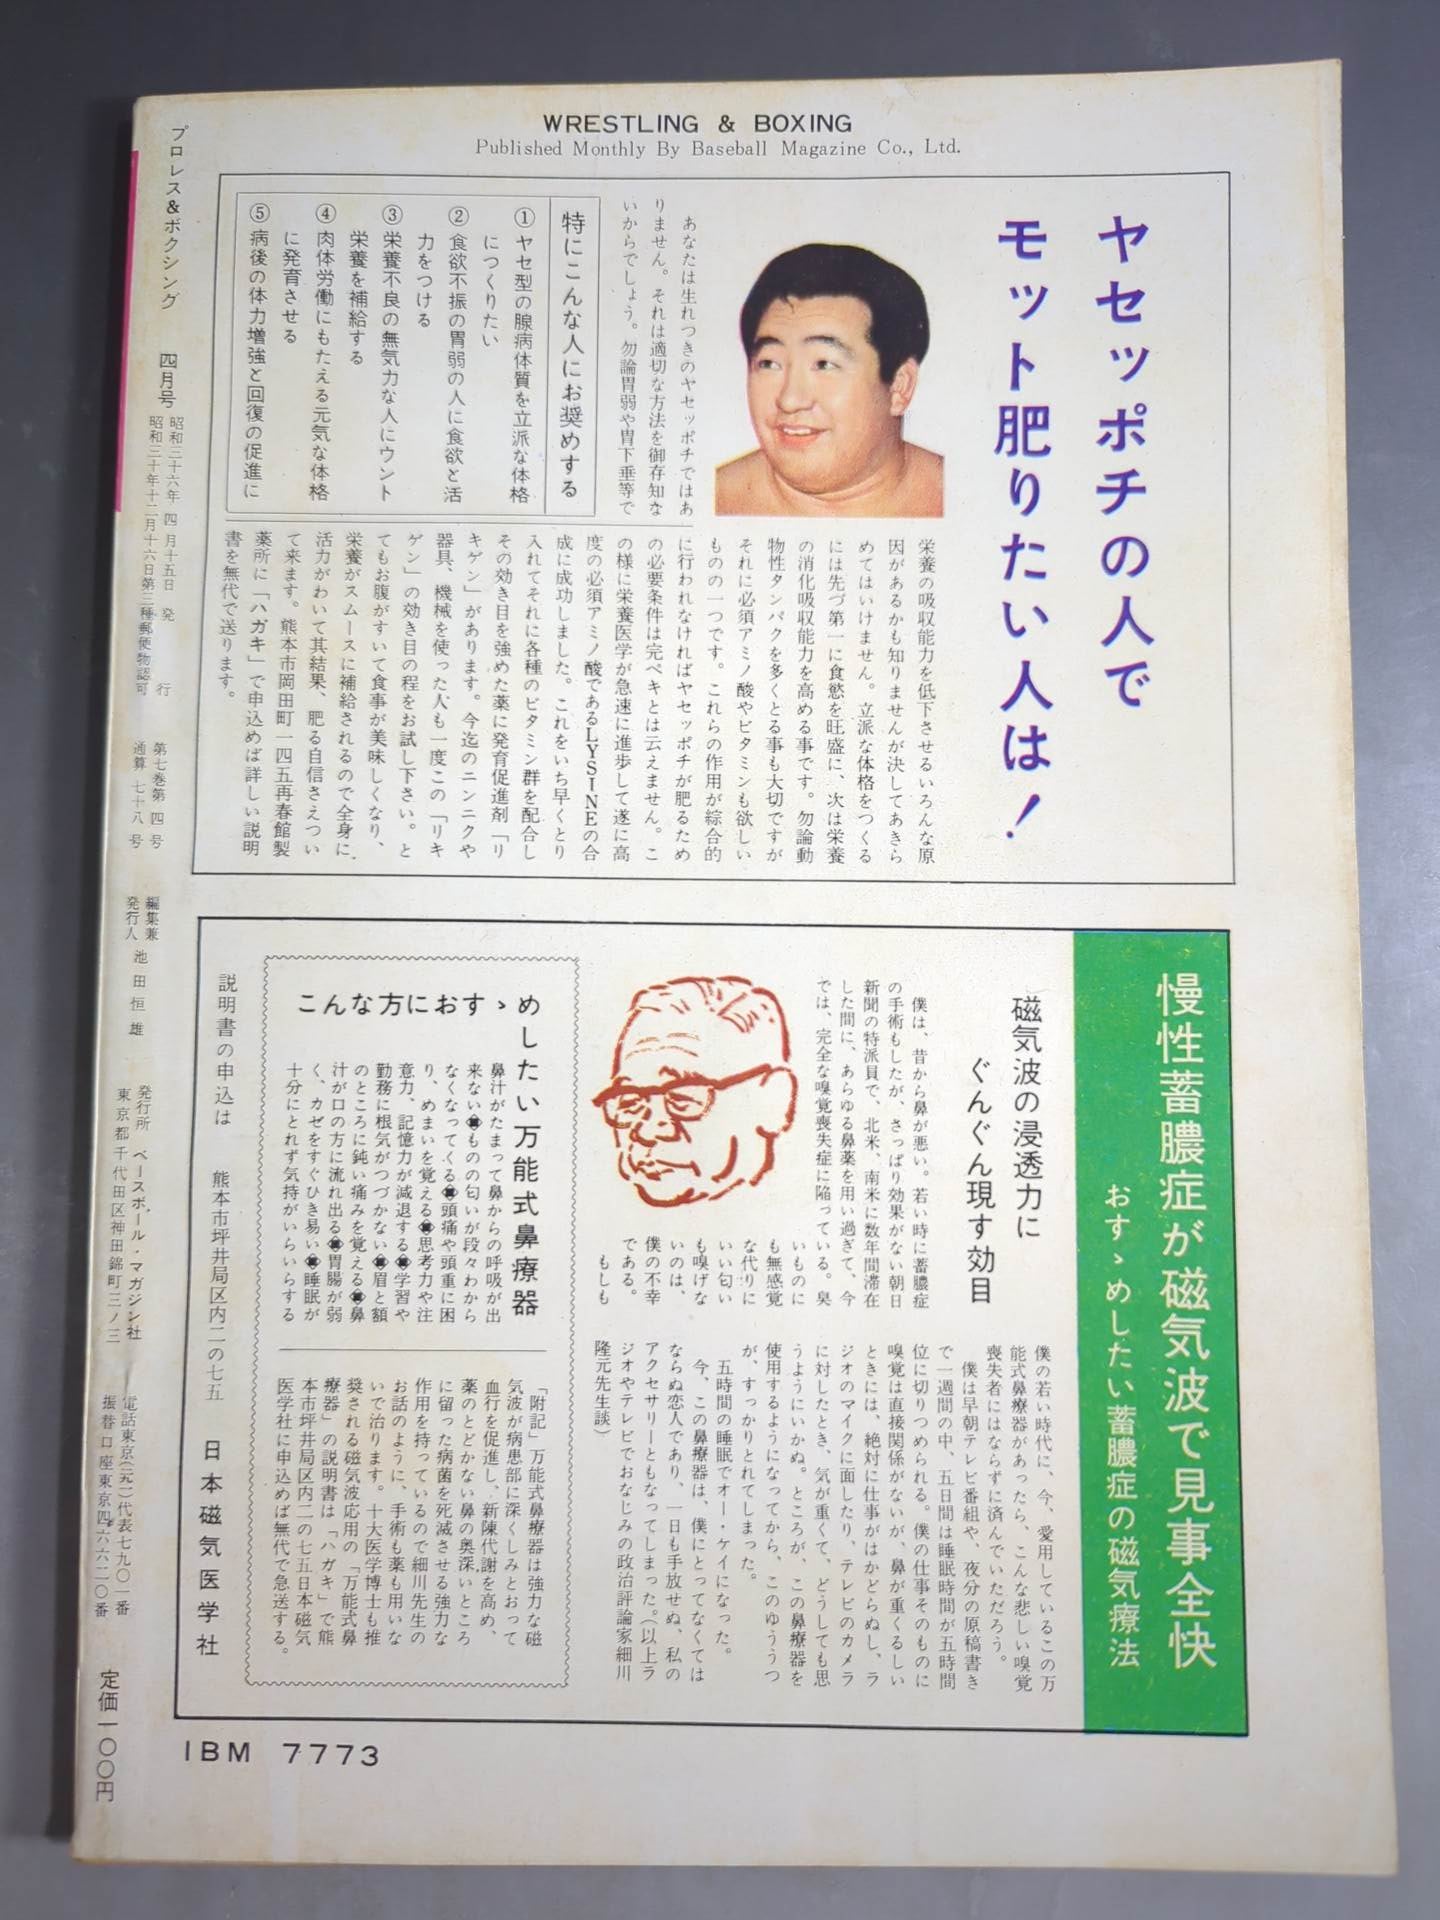 WRESTLING & BOXING
Published Monthly By Baseball Magazine Co., Ltd.
ヤセッポチの人で
モット肥りたい人は!
あなたは生れつきのヤセッポチではあ
りません。それは適切な方法を御存知な
いからでしょう。勿論胃弱や胃下垂等で
特にこんな人にお奨めする
①ヤセ型の腺病体質を立派な体格
につくりたい
②食欲不振の胃弱の人に食欲と活
力をつける
③栄養不良の無気力な人にウント
栄養を補給する
④肉体労働にもたえる元気な体格
に発育させる
⑤病後の体力増強と回復の促進に
栄養の吸収能力を低下させるいろんな原
因があるかも知りませんが決してあきら
めてはいけません。立派な体格をつくる
には先づ第一に食慾を旺盛に、次は栄養
の消化吸収能力を高める事です。勿論動
物性タンパクを多くとる事も大切ですが
それに必須アミノ酸やビタミンも欲しい
ものの一つです。これらの作用が綜合的
に行われなければヤセッポチが肥るため
の必要条件は完ペキとは云えません。こ
の様に栄養医学が急速に進歩して遂に高
度の必須アミノ酸であるLYSINEの合
成に成功しました。これをいち早くとり
入れてそれに各種のビタミン群を配合し
その効き目を強めた薬に発育促進剤「リ
キゲン」があります。今迄のニンニクや
器具、機械を使った人も一度この「リキ
ゲン」の効き目の程をお試し下さい。と
てもお腹がすいて食事が美味しくなり、
栄養がスムースに補給されるので全身に
活力がわいて其結果、肥る自信さえつい
て来ます。熊本市岡田町一四五再春館製
薬所に「ハガキ」で申込めば詳しい説明
書を無代で送ります。
慢性蓄膿症が磁気波で見事全快
おすゝめしたい蓄膿症の磁気療法
磁気波の浸透力に
ぐんぐん現す効目
僕は、昔から鼻が悪い。若い時に蓄膿症
の手術もしたが、さっぱり効果がない朝日
新聞の特派員で、北米、南米に数年間滞在
した間に、あらゆる鼻薬を用い過ぎて、今
では、完全な嗅覚喪失症に陥っている。臭
いものに
も無感覚
な代りに
いい匂い
も嗅げな
いのは、
僕の不幸
である。
もしも
僕の若い時代に、今、愛用しているこの万
能式鼻療器があったら、こんな悲しい嗅覚
喪失者にはならずに済んでいただろう。
僕は早朝テレビ番組や、夜分の原稿書き
で一週間の中、五日間は睡眠時間が五時間
位に切りつめられる。僕の仕事そのものに
嗅覚は直接関係がないが、鼻が重くるしい
ときには、絶対に仕事がはかどらぬし、ラ
ジオのマイクに面したり、テレビのカメラ
に対したとき、気が重くて、どうしても思
うようにいかぬ。ところが、この鼻療器を
使用するようになってから、このゆううつ
が、すっかりとれてしまった。
五時間の睡眠でオー・ケイになった。
今、この鼻療器は、僕にとってなくては
ならぬ恋人であり、一日も手放せぬ、私の
アクセサリーともなってしまった。(以上ラ
ジオやテレビでおなじみの政治評論家細川
隆元先生談)
こんな方におすゝめしたい万能式鼻療器
鼻汁がたまって鼻からの呼吸が出
来ない◆ものの匂いが段々わから
なくなってくる◆頭痛や頭重に困
り、めまいを覚える◆思考力や注
意力、記憶力が減退する◆学習や
勤務に根気がつづかない◆眉と額
のところに鈍い痛みを覚える◆鼻
汁が口の方に流れ出る◆胃腸が弱
く、カゼをすぐひき易い◆睡眠が
十分にとれず気持がいらいらする
「附記」万能式鼻療器は強力な磁
気波が病患部に深くしみとおって
血行を促進し、新陳代謝を高め、
薬のとどかない鼻の奥深いところ
に留った病菌を死滅させる強力な
作用を持っているので細川先生の
お話のように、手術も薬も用いな
いで治ります。十大医学博士も推
奨される磁気波応用の「万能式鼻
療器」の説明書は「ハガキ」で熊
本市坪井局区内二の七五日本磁気
医学社に申込めば無代で急送する。
説明書の申込は 熊本市坪井局区内二の七五 日本磁気医学社
IBM 7773
プロレス&ボクシング 四月号
昭和三十六年四月十五日発行
昭和三十年十二月十六日第三種郵便物認可
第七巻第四号
通算七十八号
編集兼
発行人 池田恒雄
発行所 ベースボール・マガジン社
東京都千代田区神田錦町三ノ三
電話東京(元二)代表七九〇一番
振替口座東京四六六二〇番
定価一〇〇円